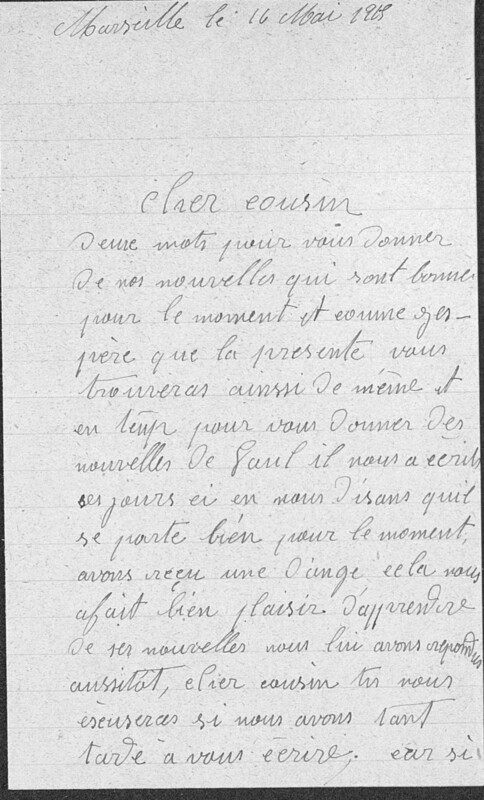 Marseille le 16 Mai
cher cousin
deux mots pour vous donner
de nos nouvelles qui sont bonne
pour le moment et comme
père que la presente vous
trouveras ainssi de même et
en temp pour vous donner des
nouvelles de Paul il nous a écrit
ses jours ci en nous disans quil
se porte bién pour le moment,
avons reçu une d'angé cela nous
afait bién plaisir d'apprendre
de ses nouvelles nous lui avons repondus
aussitot, cher cousin tu nous
éscuseras si nous avons tant
tardé a vous écrire, car si